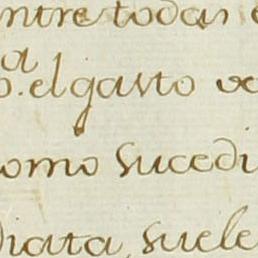 entre todas
a
o. el gasto
como sucedi
diata, suele